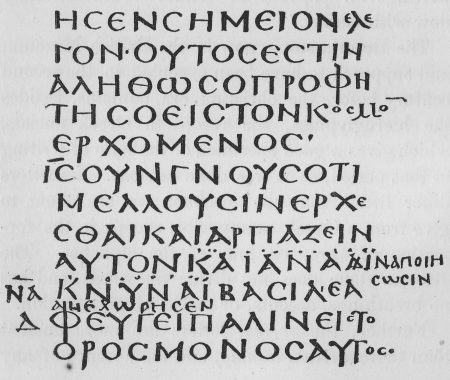 ΗϹΕΝϹΗΜΕΙΟΝΕΛΕ
ΓΟΝΟΥΤΟϹΕϹΤΙΝ
ΑΛΗΘΩϹΟΠΡΟΦΗ
ΤΗϹΟΕΙϹΤΟΝΚΟϹΜΟ̅
ΕΡΧΟΜΕΝΟϹ
Ι̅Ϲ̅ΟΥΝΓΝΟΥϹΟΤΙ
ΜΕΛΛΟΥϹΙΝΕΡΧΕ
ϹΘΑΙΚΑΙΑΡΠΑΖΕΙΝ
ΑΥΤΟΝΚΑΙΑΝΑΔΙ ΪΝΑΠΟΙΗ
ϹΩϹΙΝ
ΚΝΥΝΑΙΒΑϹΙΛΕΑ
ΑΝΕΧΩΡΗϹΕΝ
ΦΕΥΓΕΙΠΑΛΙΝΕΙϹΤΟ
ΟΡΟϹΜΟΝΟϹΑΥΤΟϹ·